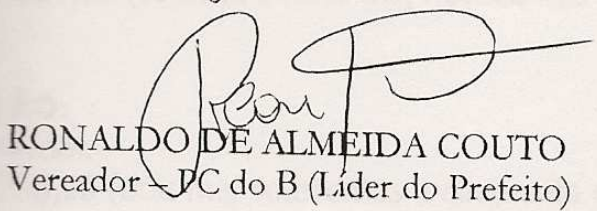 RONALDO DE ALMEIDA COUTO
Vereador – PC do B (Líder do Prefeito)